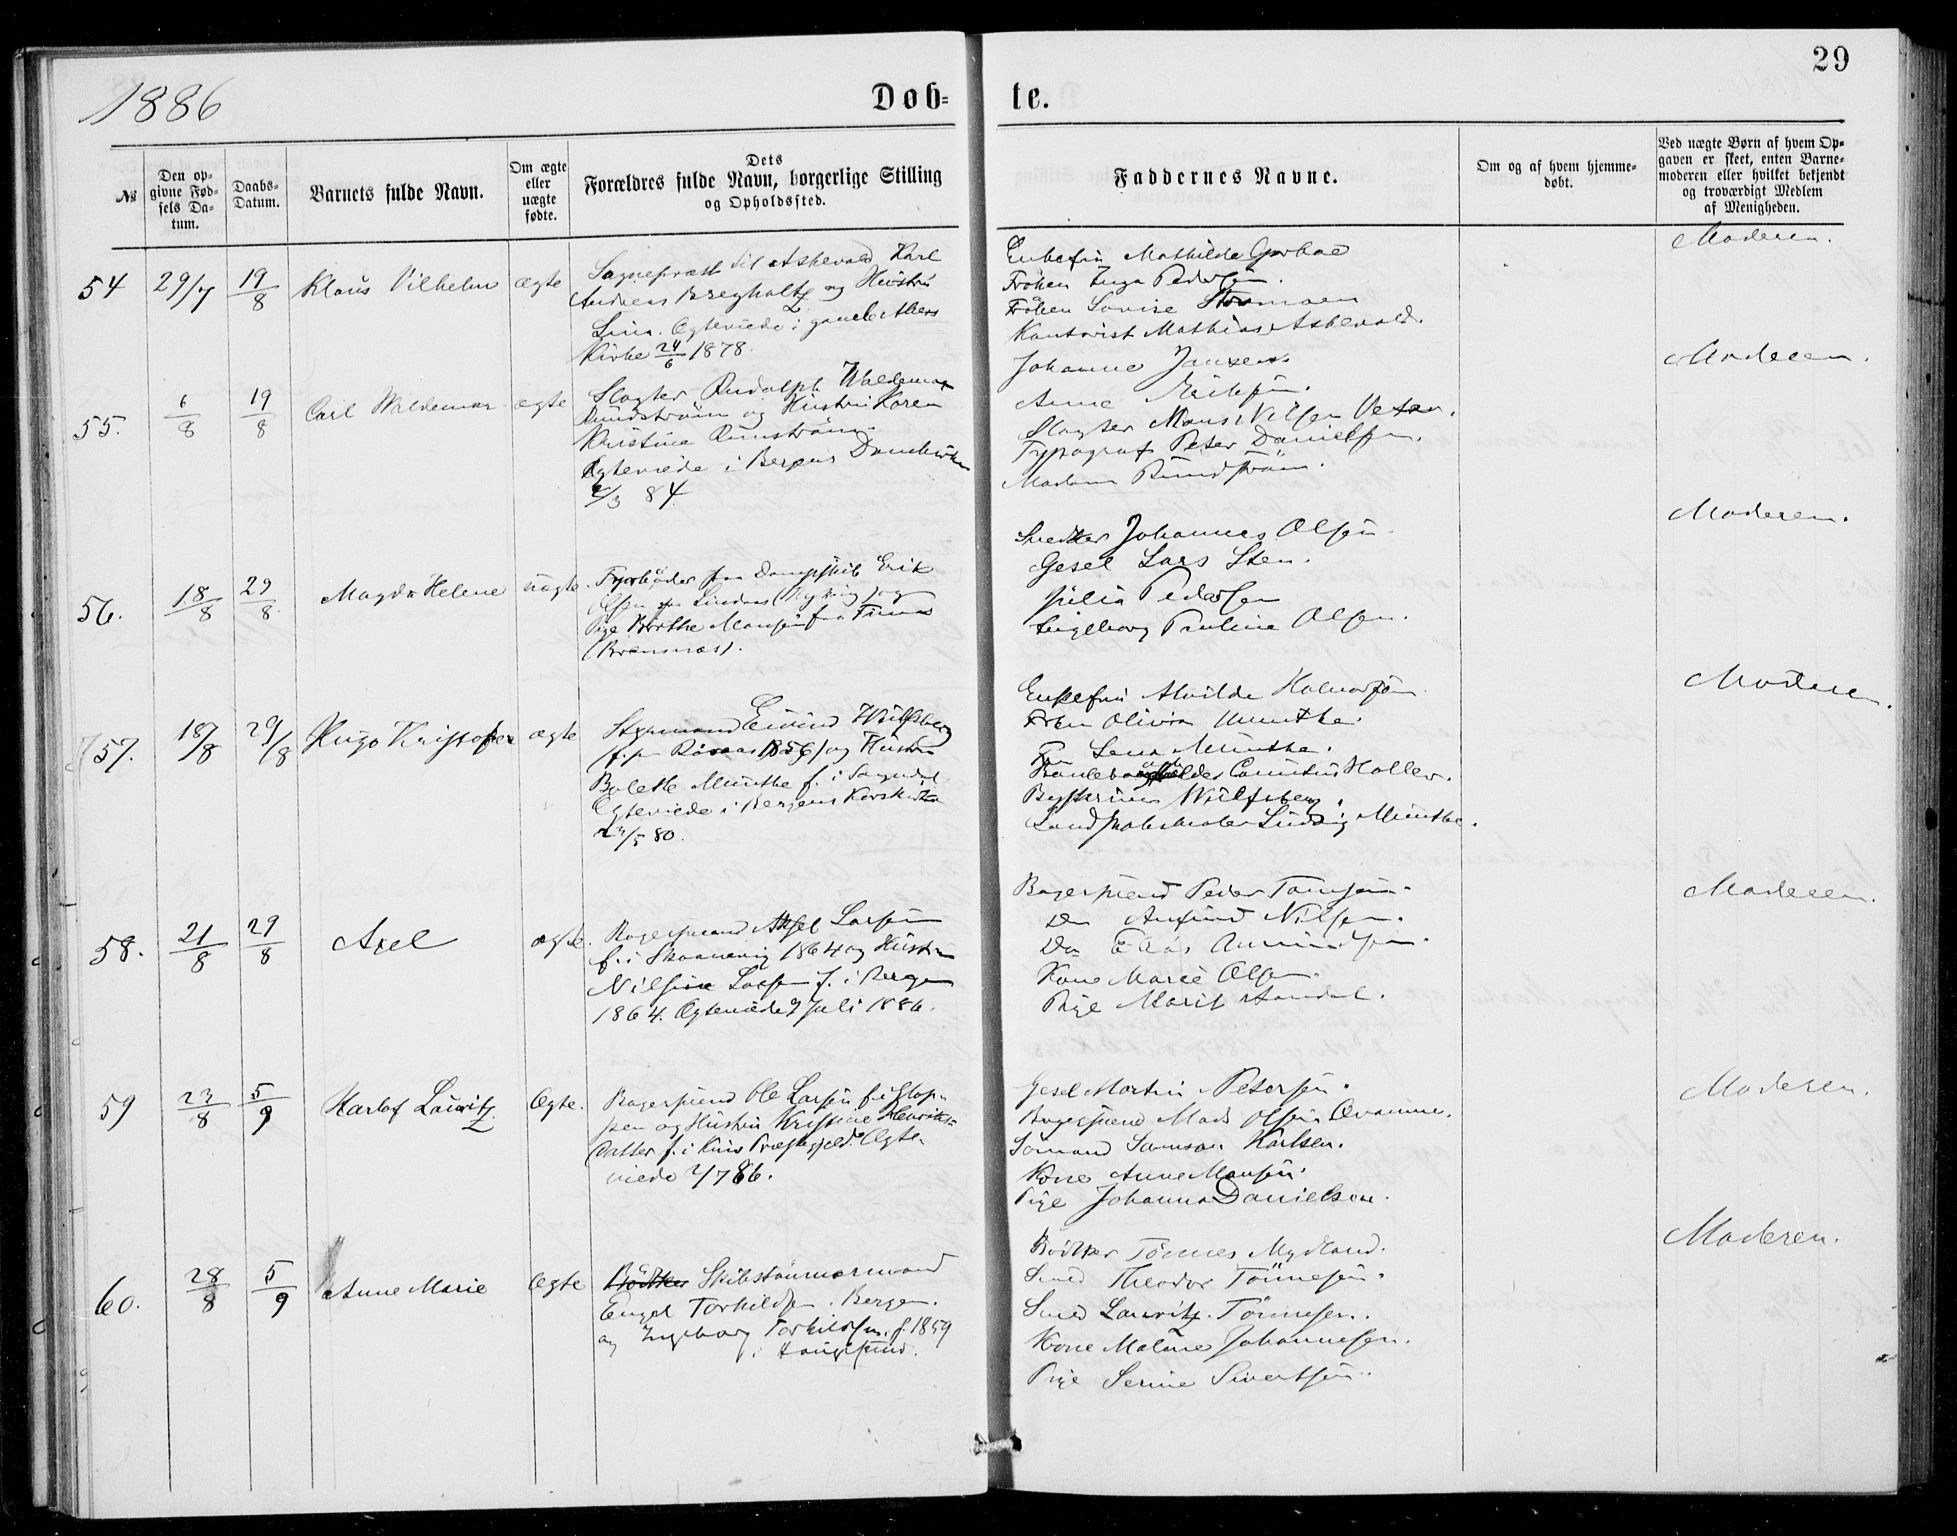 29
1886
Døb-
te.
№
Den op-
givne Fød-
sels Da-
tum.
Daabs-
Datum.
Barnets fulde Navn.
Om ægte
eller
uægte
fødte.
Dets
Forældres fulde Navn, borgerlige Stilling
og Opholdssted.
Faddernes Navne.
Om og af hvem hjemme-
døbt.
Ved uægte Børn af hvem Op-
gaven er skeet, enten Barne-
moderen eller hvilket bekjendt
og troværdigt Medlem
af Menigheden.
54
29/7
19/8
Klaus Vilhelm
ægte
Sognepræst til Askevold Karl
Andreas Bregholtz og Hustru
Lina. Ægteviede i gamle Akers
Kirke 24/6 1878.
Enkefru Mathilde
Frøken Inga Pedersen.
Frøken Lovise
Kontorist Mathias Askevold.
Moderen.
55.
6/8
19/8
Carl Waldemar
ægte
Slagter Rudolph Waldemar
Rundstrøm og Hustru Karen
Kristine Runstrøm.
Ægteviede i Bergens Domkirke
2/3 84.
Johanne Jansen.
Anne Eriksen.
Slagter Mons Nilsen
Typograf Peter Danielsen.
Madam Rundstrøm.
Moderen.
56.
18/8
29/8
Magda Helene
uægte.
Fyrbøder paa Dampskib Erik
Olsen fra Lindaas og
Pige Berthe Monsen fra
(Bremnæs).
Snedker Johannes Olsen
Gesel Lars Sten.
Julia Pedersen
Ingeborg Pauline Olsen.
Moderen.
57.
18/8
29/8
Hugo Kristofer
ægte
Styrmand Eivind Wulfsberg
f. paa Røraas 1856 og Hustru
Bolette Munthe f. i Sogndal
Ægteviede i Bergens Korskirke
24/5 80.
Enkefru Alvilde Halvorsen
Frøken Olivia Munthe.
Fru Lena Munthe.
Haller.
Wulfsberg.
Landskabsmaler Ludvig Munthe.
Moderen.
58.
21/8
29/8
Axel
ægte.
Bagersvend Aksel Larsen
f. i Skaanevig 1864 og Hustru
Nilsine Larsen f. i Bergen
1864. Ægteviede 7 Juli 1886.
Bagersvend Peder Tomsen.
Do Amund Nilsen.
Do Elias
Kone Marie Olsen.
Pige Marit
Moderen.
59
23/8
5/9
Karlof Lauritz
Ægte.
Bagersvend Ole Larsen f. i Glop-
pen og Hustru Kristine
Datter f. i Kins Præstegjeld. Ægte-
viede 2/7 86.
Gesel Martin Petersen.
Bagersvend Mads Olsen
Sømand Samson Karlsen.
Kone Anne Monsen.
Pige Johanna Danielsen.
Moderen.
60.
28/8
5/9
Anne Marie
Ægte
Bødker Skibstømmermand
Engel Torkildsen. Bergen.
og Ingeborg Torkildsen. f. 1859
i Haugesund.
Bødker Tønnes Mydland.
Smed Theodor Tønnesen.
Smed Lauritz Tønnesen.
Kone Maline Johannesen.
Pige Serine Sivertsen.
Moderen.